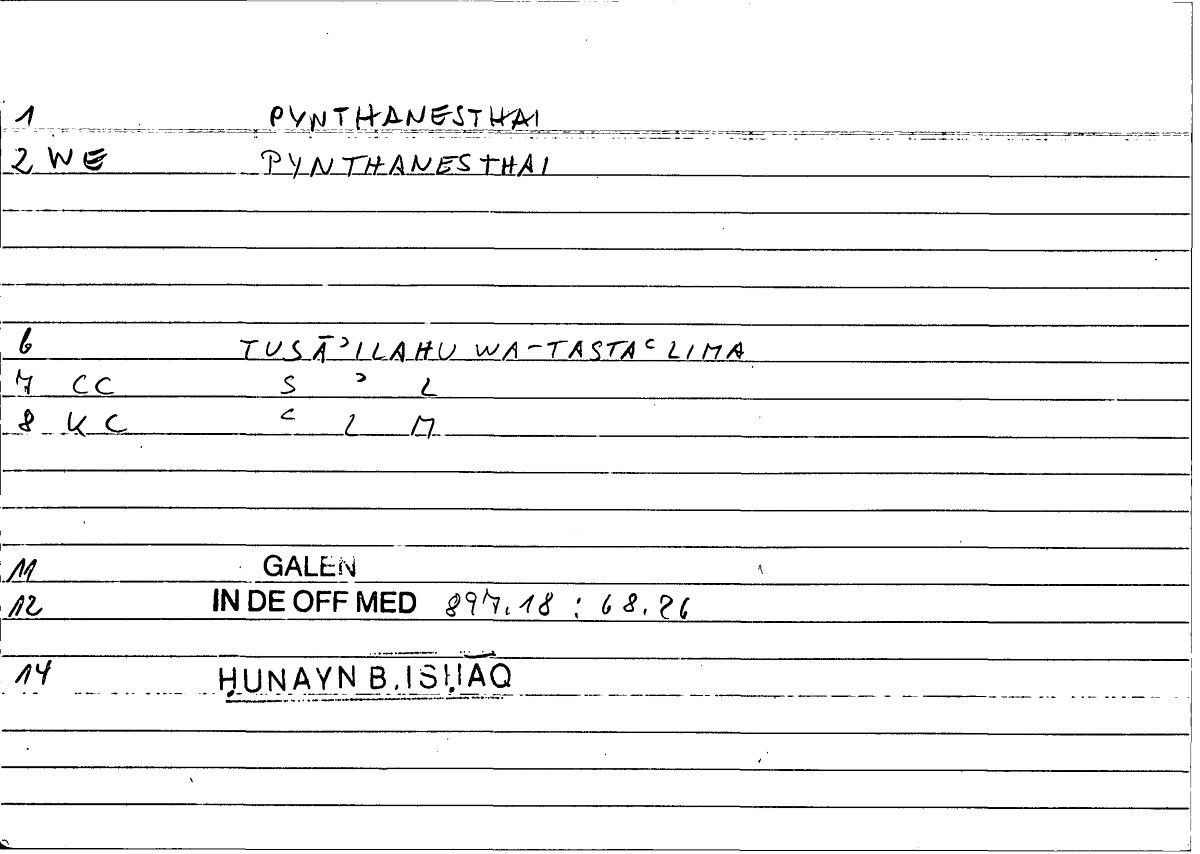 1 PYNTHANESTHAI
2 WE PYNTHANESTHAI
6 TUSĀʾILAHU WA-TASTAʿLIMA
7 CC S ʾ L
8 KC ʿ L M
11 GALEN
12 IN DE OFF MED 897.18 : 68.26
14 ḤUNAYN B. ISḤĀQ